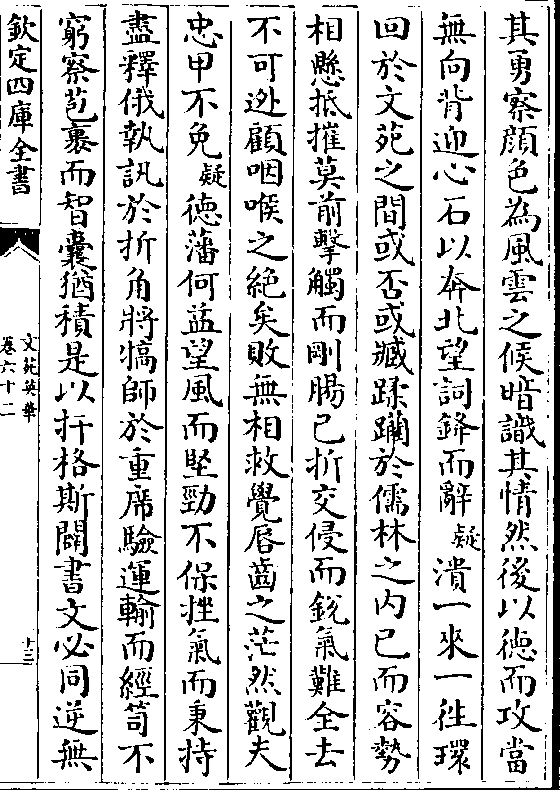 其勇察顔色為風雲之候暗識其情然後以徳而攻當
無向背迎心石以奔北望詞鋒而辭疑潰一來一徃環
回於文苑之間或否或臧蹂躪於儒林之内已而容勢
相懸抵摧莫前擊觸而剛腸已折交侵而銳氣難全去
不可逃顧咽喉之絶矣敗無相救覺唇齒之茫然觀夫
忠甲不免疑徳藩何益望風而堅勁不保挫氣而秉持
盡釋俄執訊於折角將犒師於重席驗運輸而經笥不
窮察苞裹而智囊猶積是以扞格斯闢書文必同逆無
欽定四庫全書
文苑英華
卷六十二
十三